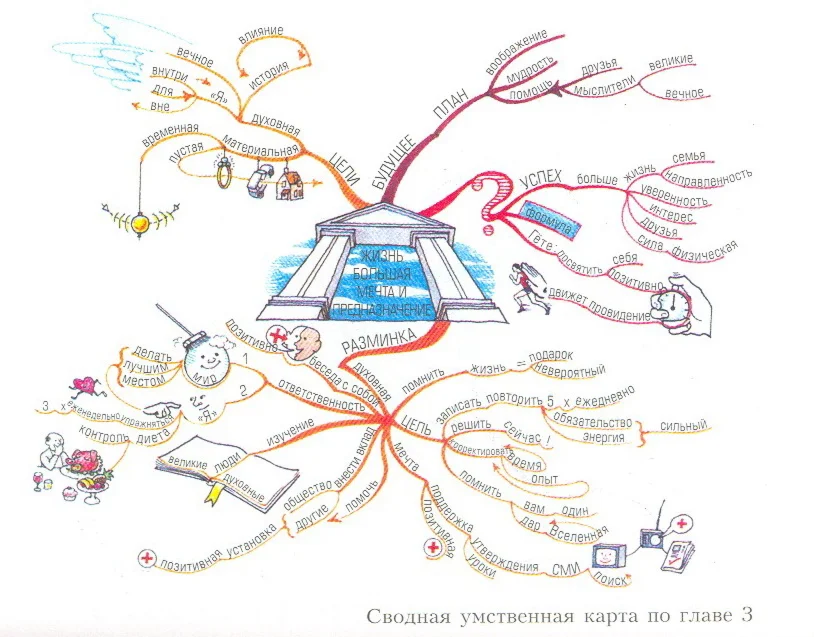 вечное
внутри
для
вне
"Я"
влияние
история
духовная
временная
пустая
материальная
ЦЕЛИ
БУДУЩЕЕ
ПЛАН
воображение
мудрость
помощь
друзья
мыслители
великие
вечное
УСПЕХ
больше
жизнь
семья
направленность
уверенность
интерес
друзья
сила физическая
формула
Гёте:
посвятить
себя
позитивно
движет провидение
ЖИЗНЬ
БОЛЬШАЯ
МЕЧТА И
ПРЕДНАЗНАЧЕНИЕ
РАЗМИНКА
духовная
позитивно
беседа с собой
1
мир
делать
лучшим
местом
ответственность
2
"Я"
3 х еженедельно упражнять
контроль диета
изучение
великие люди
духовные
внести вклад
общество
другие
помочь
позитивная установка
ЦЕЛЬ
помнить
жизнь = подарок
невероятный
записать повторить 5 х ежедневно
обязательство
энергия
сильный
решить сейчас!
корректировать
время
опыт
помнить
вам один
дар Вселенная
мечта
поддержка
позитивная
утверждения
уроки
СМИ
поиск
Сводная умственная карта по главе 3